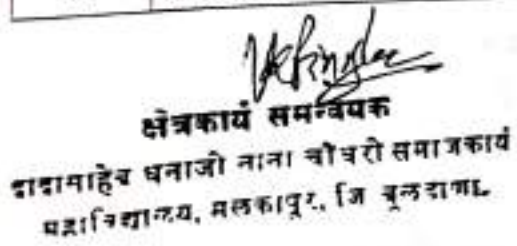 क्षेत्रकार्य समन्वयक
दादासाहेब धनाजी नाना चौधरी समाजकार्य
महाविद्यालय, मलकापूर, जि बुलढाणा.